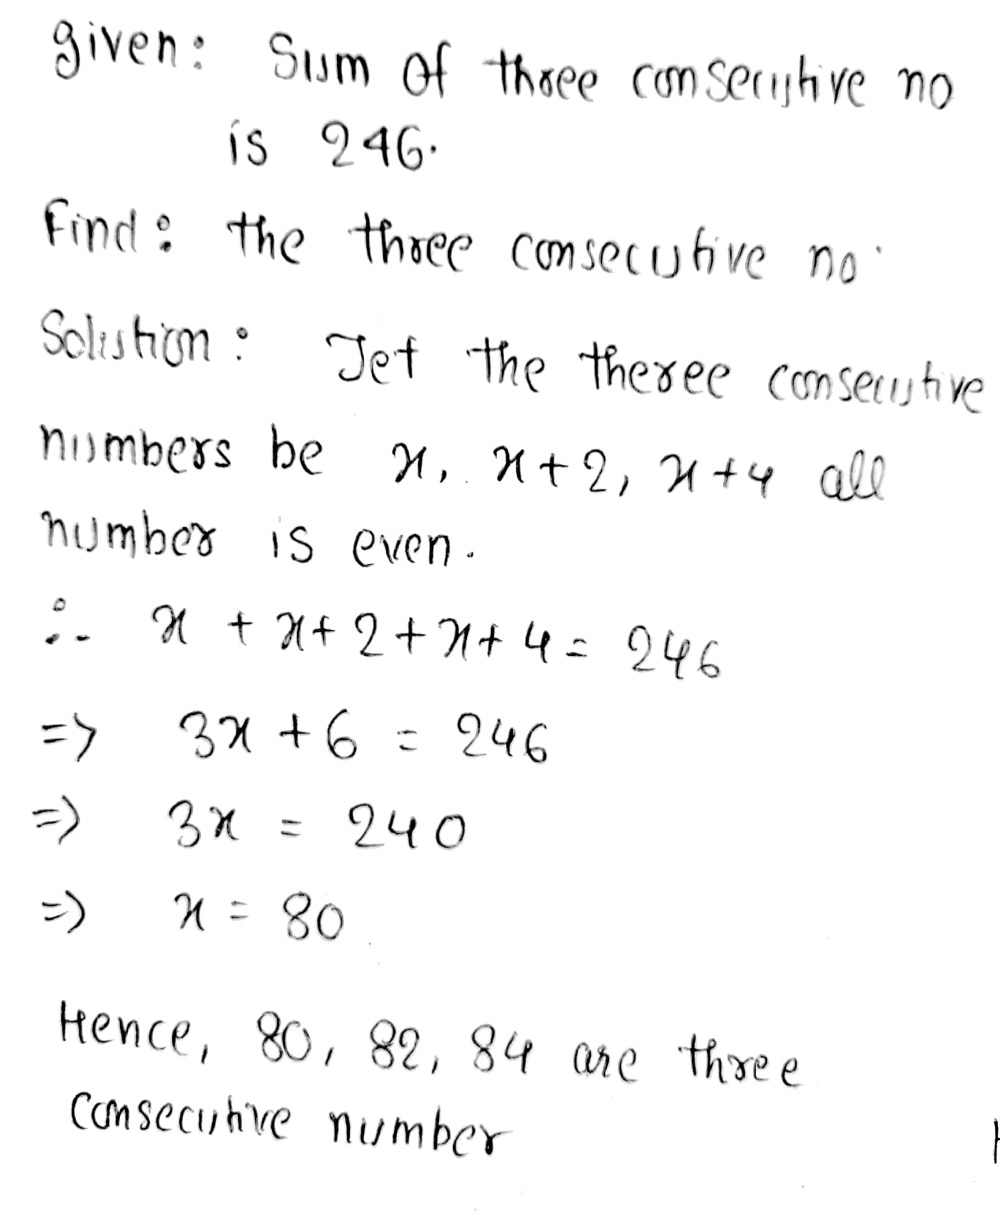 given: Sum of three consecutive no
is 246.
Find: the three consecutive no.
Solution: Let the theree consecutive
numbers be x, x+2, x+4 all
number is even.
∴ x + x+2+x+4 = 246
=> 3x + 6 = 246
=> 3x = 240
=> x = 80
Hence, 80, 82, 84 are three
consecutive number